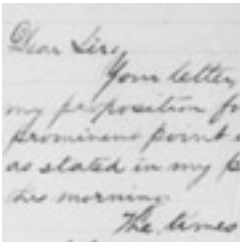 Dear Sirs,
Your letter,
my proposition fo
prominent point
as stated in my p
this morning.
The times